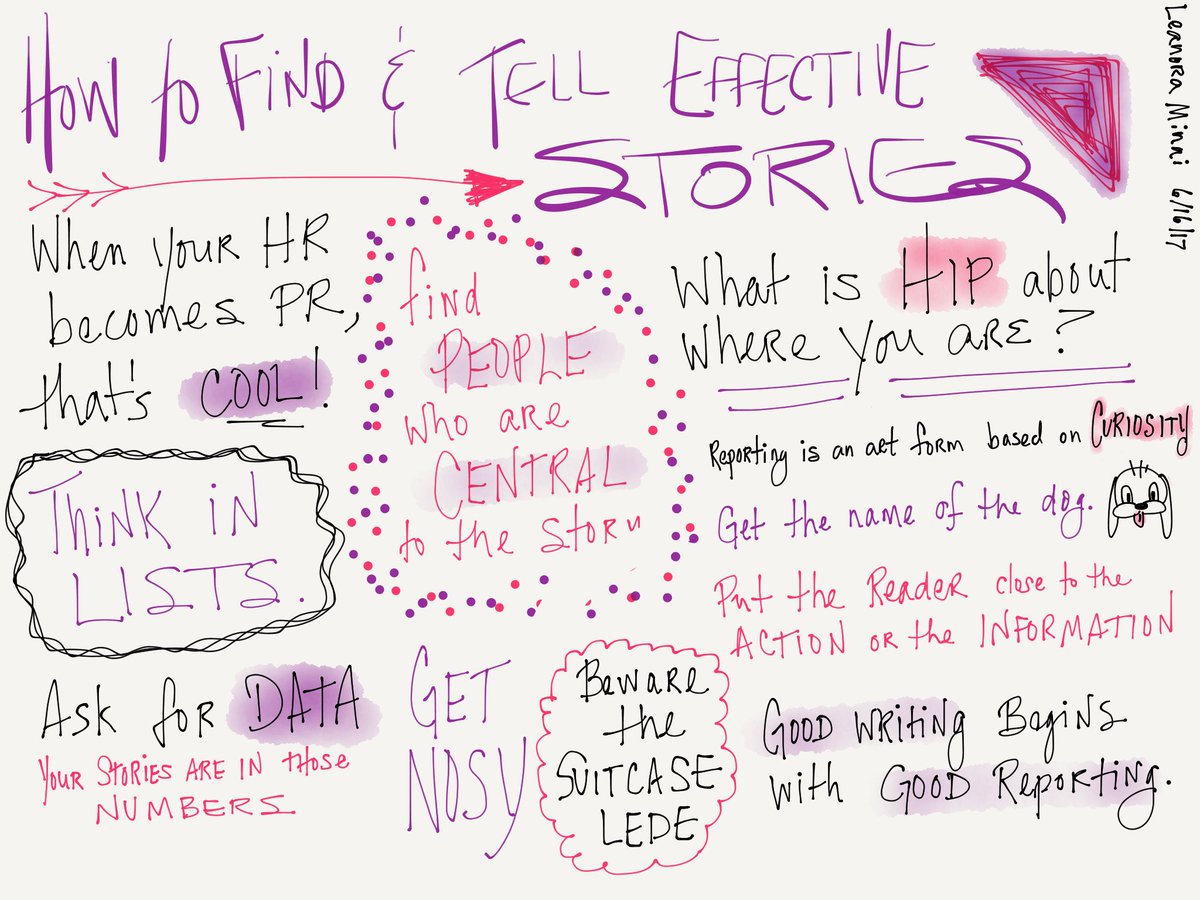 How to Find & Tell Effective
Stories
Leanora Minni 6/16/17
When your HR
becomes PR,
that's COOL!
find
PEOPLE
who are
CENTRAL
to the story
What is HIP about
where you are?
Reporting is an art form based on CURIOSITY
Get the name of the dog.
Put the Reader close to the
ACTION or the INFORMATION
THINK IN
LISTS.
Ask for DATA
Your Stories are in those
NUMBERS
GET
NOSY
Beware
the
SUITCASE
LEDE
GOOD WRITING Begins
with GOOD Reporting.